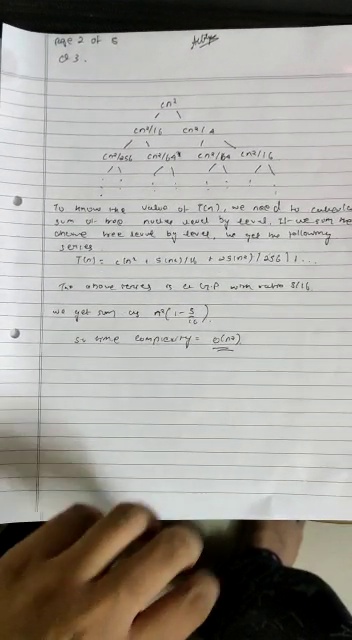 Page 2 of 5
Q 3.
cn²
cn²/16 cn²/4
cn²/256 cn²/64 cn²/64 cn²/16
To know the value of T(n), we need to
sum of tree nodes level by level. If we sum the
above tree level by level, we get the following
series
T(n) = c(n² + 5(n²)/16 + 25(n²)/256) + ...
The above series is a G.P with ratio 5/16
we get sum as n²(1 - 5/16)
so time complexity = O(n²)